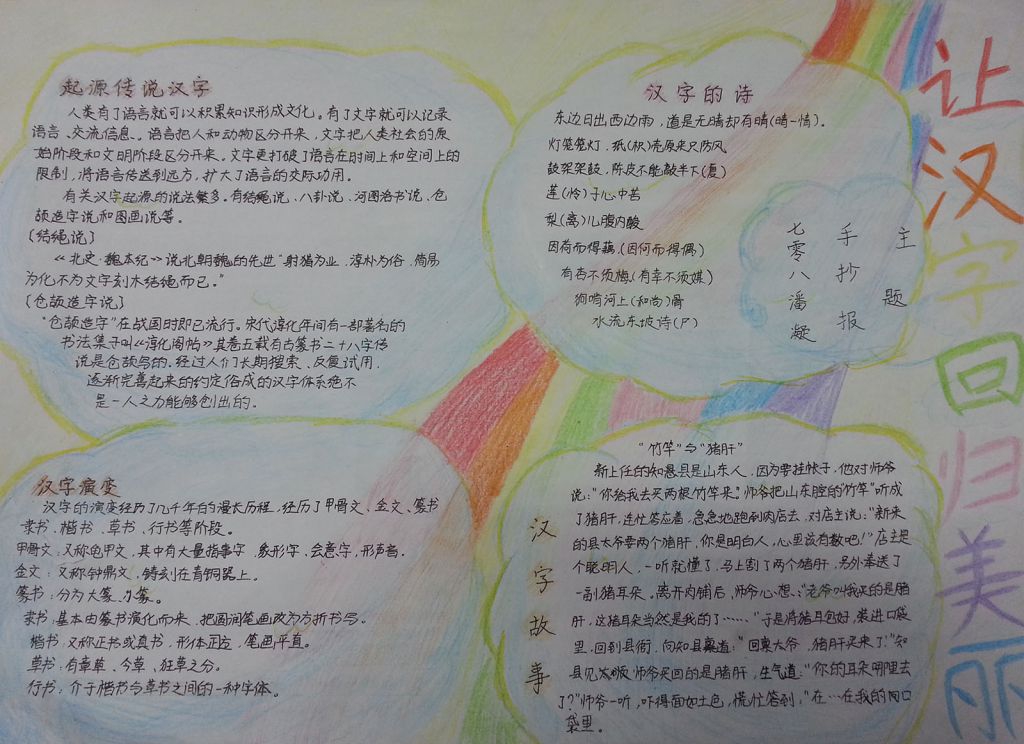 让汉字回归美丽
起源传说汉字
人类有了语言就可以积累知识形成文化。有了文字就可以记录
语言、交流信息。语言把人和动物区分开来，文字把人类社会的原
始阶段和文明阶段区分开来。文字更打破了语言在时间上和空间上的
限制，将语言传送到远方，扩大了语言的交际功用。
有关汉字起源的说法繁多。有结绳说、八卦说、河图洛书说、仓
颉造字说和图画说等。
〔结绳说〕
《北史·魏本纪》说北朝魏的先世"射猎为业，淳朴为俗，简易
为化不为文字刻木结绳而已。"
〔仓颉造字说〕
"仓颉造字"在战国时即已流行。宋代淳化年间有一部著名的
书法集子叫《淳化阁帖》其卷五载有古篆书二十八字传
说是仓颉写的。经过人们长期搜索、反复试用，
逐渐完善起来的约定俗成的汉字体系绝不
是一人之力能够创出的。
汉字的诗
东边日出西边雨，道是无晴却有晴(晴-情)。
灯笼笼灯，纸(枳)壳原来只防风
鼓架架鼓，陈皮不能敲半下(夏)
莲(怜)子心中苦
梨(离)儿腹内酸
因荷而得藕(因何而得偶)
有杏不须梅(有幸不须媒)
狗啃河上(和尚)骨
水流东坡诗(尸)
主题
手抄报
七零八潘凝
汉字演变
汉字的演变经历了几千年的漫长历程，经历了甲骨文、金文、篆书
隶书、楷书、草书、行书等阶段。
甲骨文：又称龟甲文，其中有大量指事字、象形字、会意字、形声字。
金文：又称钟鼎文，铸刻在青铜器上。
篆书：分为大篆、小篆。
隶书：基本由篆书演化而来，把圆润笔画改为方折书写。
楷书：又称正书或真书，形体正方，笔画平直。
草书：有章草、今草、狂草之分。
行书：介于楷书与草书之间的一种字体。
汉字故事
"竹竿"与"猪肝"
新上任的知县是山东人，因为要挂帐子，他对师爷
说："你给我去买两根竹竿来。"师爷把山东腔的"竹竿"听成
了猪肝，连忙答应着，急急地跑到肉店去，对店主说："新来
的县太爷要两个猪肝，你是明白人，心里该有数吧！"店主是
个聪明人，一听就懂了，马上割了两个猪肝，另外奉送了
一副猪耳朵。离开肉铺后，师爷心想："老爷叫我买的是猪
肝，这猪耳朵当然是我的了……"于是将猪耳包好，装进口袋
里，回到县衙，向知县禀道："回禀大爷，猪肝买来了"知
县见师爷买回的是猪肝，生气道："你的耳朵哪里去
了？"师爷一听，吓得面如土色，慌忙答到："在…在我的口
袋里。